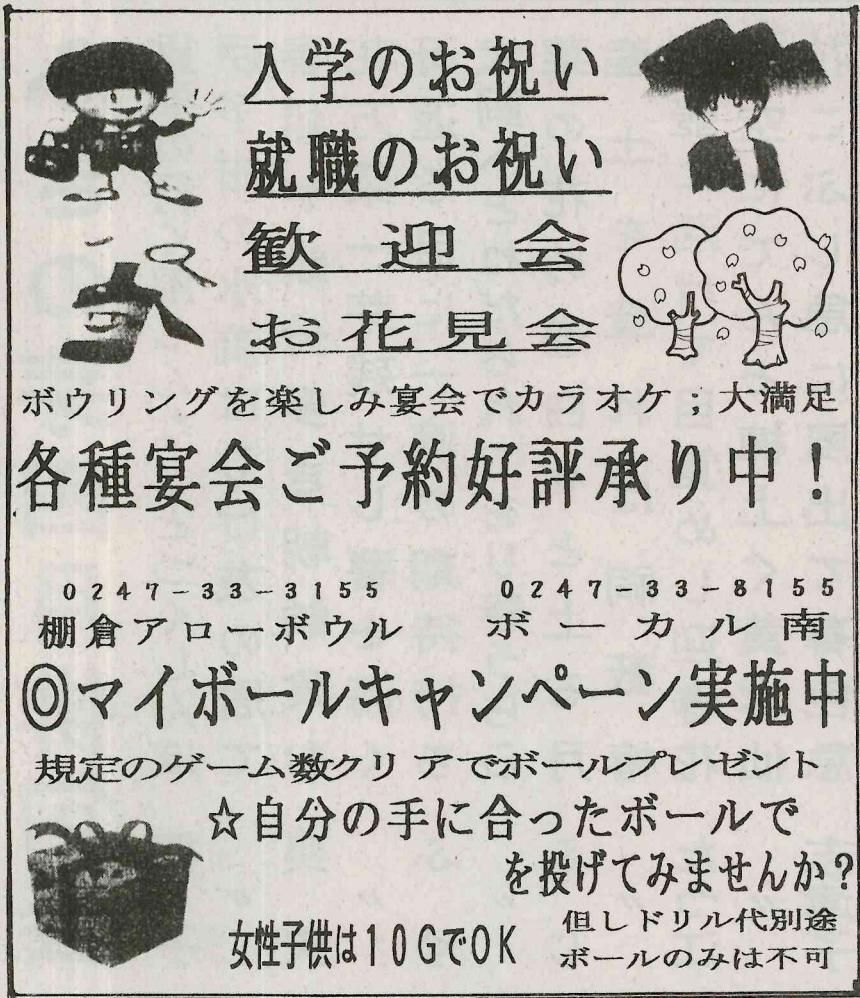 入学のお祝い
就職のお祝い
歓迎会
お花見会
ボウリングを楽しみ宴会でカラオケ;大満足
各種宴会ご予約好評承り中!
0247-33-3155
0247-33-8155
棚倉アローボウル
ボーカル南
◎マイボールキャンペーン実施中
規定のゲーム数クリアでボールプレゼント
☆自分の手に合ったボールで
を投げてみませんか?
女性子供は10GでOK
但しドリル代別途
ボールのみは不可